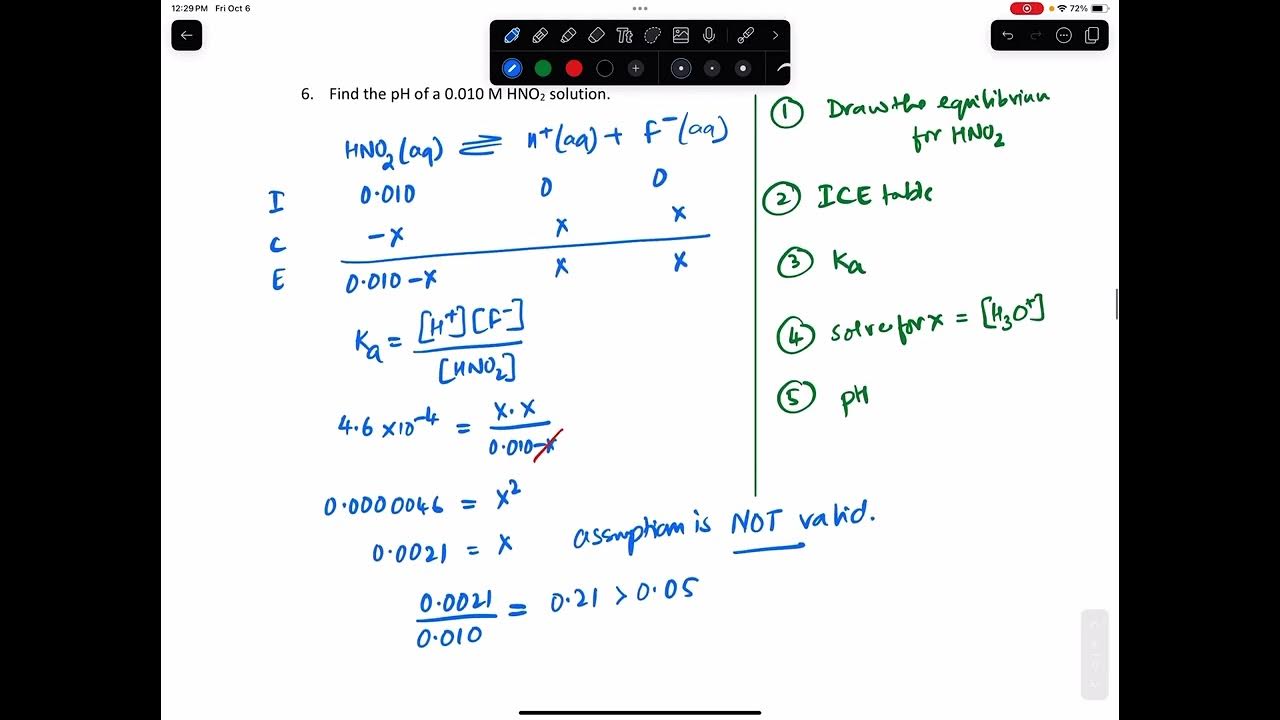 12:29 PM Fri Oct 6
72%
6. Find the pH of a 0.010 M HNO₂ solution.
HNO₂(aq) ⇌ H⁺(aq) + F⁻(aq)
I 0.010 0 0
C -x x x
E 0.010-x x x
Ka = [H⁺][F⁻] / [HNO₂]
4.6 x10⁻⁴ = x.x / 0.010-x
0.0000046 = x²
0.0021 = x
assumption is NOT valid.
0.0021 / 0.010 = 0.21 > 0.05
① Draw the equilibrium
for HNO₂
② ICE table
③ Ka
④ solve for x = [H₃O⁺]
⑤ pH